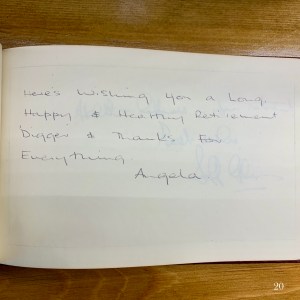 Heres Wishing You a Long
Happy & Healthy Retirement
Digger & Thanks For
Everything
Angela
20